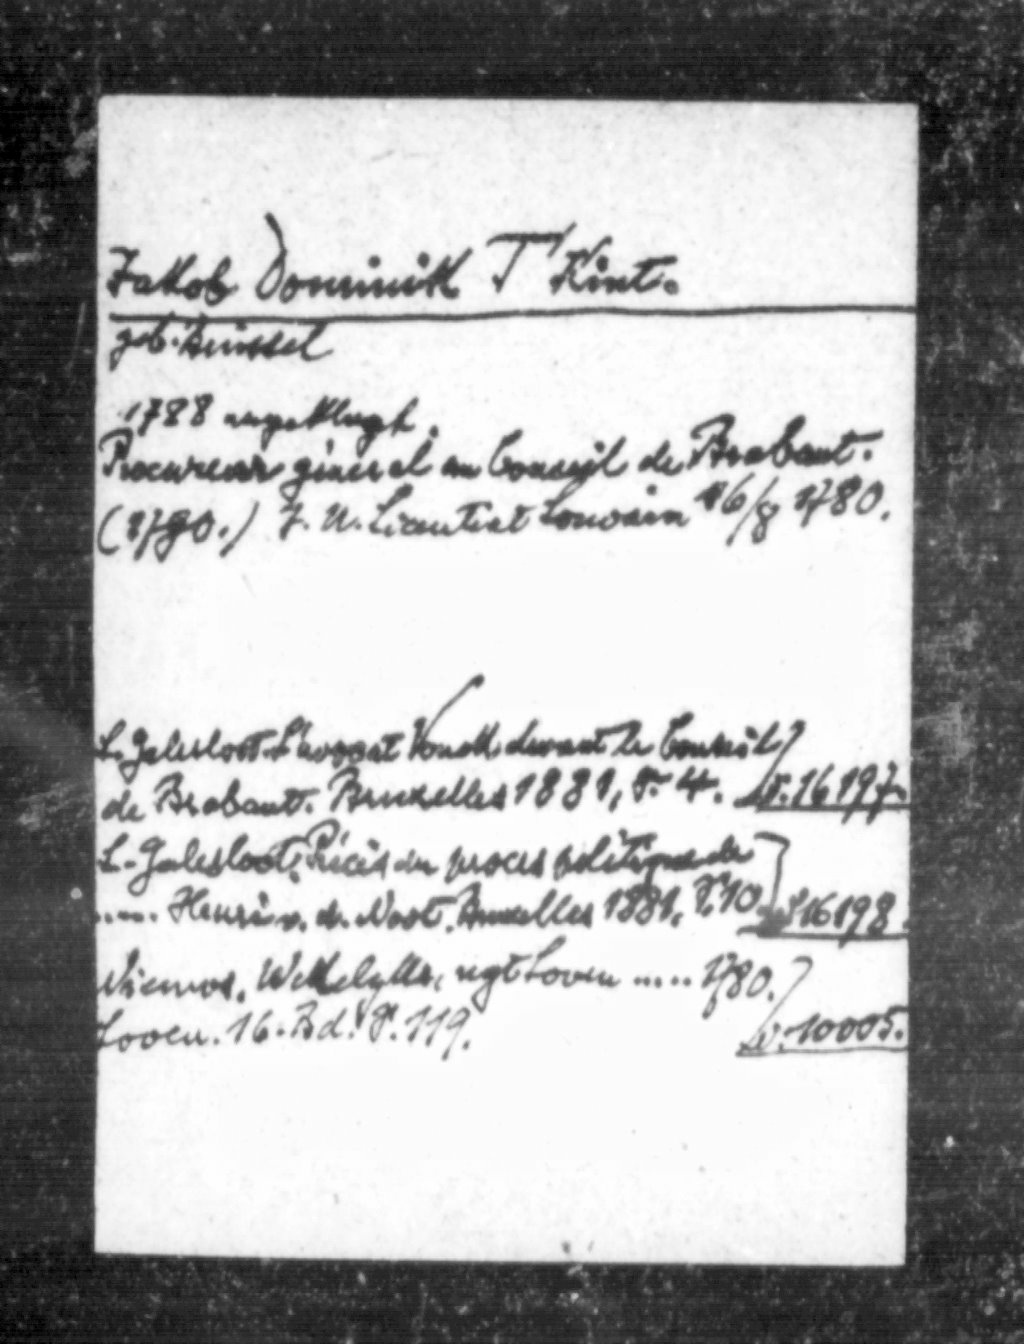 Jakob Dominik T'Kint.
geb. Brüssel
1788 angeklagt.
Procureur général au Conseil de Brabant.
(1790.) J. U. Licentiat Louvain 16/8 1780.
L. Galesloot. L'avocat Vonck devant le Conseil
de Brabant. Bruxelles 1881, P. 4. W. 16197.
L. Galesloot, Précis du procès politique de
..... Henri v. d. Noot. Bruxelles 1881. P. 10 W. 16198.
Wekelyks, Loven ..... 1780.
Loven. 16. Bd. P. 119. W. 10005.